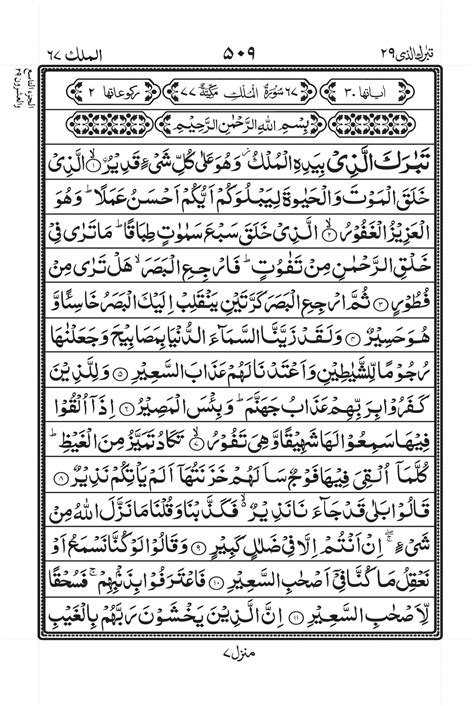 تبٰرك الذی ٢٩
٥٠٩
الملك ٦٧
الجزء التاسع
والعشرون ٢٩
اٰیاتها ٣٠
٦٧ سُوْرَةُ الْمُلْكِ مَكِّيَّةٌ ٧٧
رکوعاتها ٢
بِسْمِ اللهِ الرَّحْمٰنِ الرَّحِيْمِ
تَبٰرَكَ الَّذِىْ بِيَدِهِ الْمُلْكُ ز وَهُوَ عَلٰى كُلِّ شَىْءٍ قَدِيْرُ ۙ ١ الَّذِىْ
خَلَقَ الْمَوْتَ وَالْحَيٰوةَ لِيَبْلُوَكُمْ اَيُّكُمْ اَحْسَنُ عَمَلًا ؕ وَهُوَ
الْعَزِيْزُ الْغَفُوْرُ ۙ ٢ الَّذِىْ خَلَقَ سَبْعَ سَمٰوٰتٍ طِبَاقًا ؕ مَا تَرٰى فِىْ
خَلْقِ الرَّحْمٰنِ مِنْ تَفٰوُتٍ ؕ فَارْجِعِ الْبَصَرَ ۙ هَلْ تَرٰى مِنْ
فُطُوْرٍ ٣ ثُمَّ ارْجِعِ الْبَصَرَ كَرَّتَيْنِ يَنْقَلِبْ اِلَيْكَ الْبَصَرُ خَاسِئًا وَّ
هُوَ حَسِيْرٌ ٤ وَلَقَدْ زَيَّنَّا السَّمَآءَ الدُّنْيَا بِمَصَابِيْحَ وَجَعَلْنٰهَا
رُجُوْمًا لِّلشَّيٰطِيْنِ وَاَعْتَدْنَا لَهُمْ عَذَابَ السَّعِيْرِ ٥ وَلِلَّذِيْنَ
كَفَرُوْا بِرَبِّهِمْ عَذَابُ جَهَنَّمَ ؕ وَبِئْسَ الْمَصِيْرُ ٦ اِذَاۤ اُلْقُوْا
فِيْهَا سَمِعُوْا لَهَا شَهِيْقًا وَّهِىَ تَفُوْرُ ۙ ٧ تَكَادُ تَمَيَّزُ مِنَ الْغَيْظِ ؕ
كُلَّمَاۤ اُلْقِىَ فِيْهَا فَوْجٌ سَاَلَهُمْ خَزَنَتُهَاۤ اَلَمْ يَاْتِكُمْ نَذِيْرٌ ٨
قَالُوْا بَلٰى قَدْ جَآءَنَا نَذِيْرٌ ۙ فَكَذَّبْنَا وَقُلْنَا مَا نَزَّلَ اللهُ مِنْ
شَىْءٍ ۚ اِنْ اَنْتُمْ اِلَّا فِىْ ضَلٰلٍ كَبِيْرٍ ٩ وَقَالُوْا لَوْ كُنَّا نَسْمَعُ اَوْ
نَعْقِلُ مَا كُنَّا فِىْۤ اَصْحٰبِ السَّعِيْرِ ١٠ فَاعْتَرَفُوْا بِذَنْۢبِهِمْ ۚ فَسُحْقًا
لِّاَصْحٰبِ السَّعِيْرِ ١١ اِنَّ الَّذِيْنَ يَخْشَوْنَ رَبَّهُمْ بِالْغَيْبِ
منزل ٧